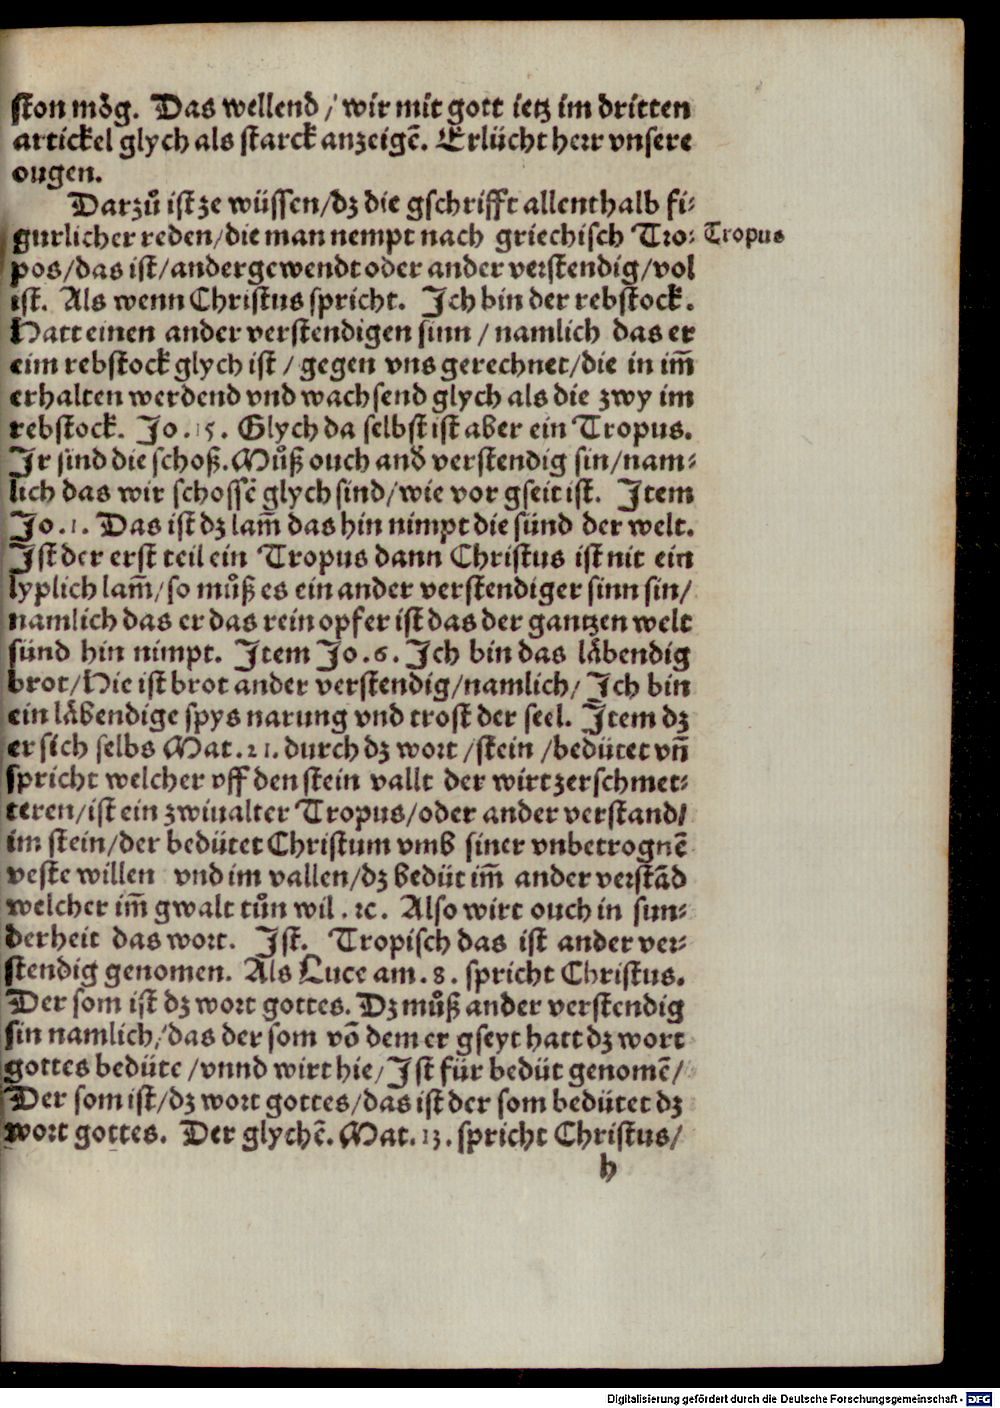 ston mög. Das wellend / wir mit gott ietz im dritten
artickel glych als starck anzeigē. Erlücht herr vnsere
ougen.
Darzů ist ze wüssen/dz die gschrifft allenthalb fi⸗
gurlicher reden/die man nempt nach griechisch Tro⸗ Tropus
pos/das ist/andergewendt oder ander verstendig/vol
ist. Als wenn Christus spricht. Ich bin der rebstock.
Hatt einen ander verstendigen sinn / namlich das er
eim rebstock glych ist / gegen vns gerechnet/die in im̄
erhalten werdend vnd wachsend glych als die zwy im
rebstock. Jo. 15. Glych da selbst ist aber ein Tropus.
Ir sind die schoß. Můß ouch and̄ verstendig sin/nam⸗
lich das wir schossē glych sind/wie vor gseit ist. Item
Jo. 1. Das ist dz lam̄ das hin nimpt die sünd der welt.
Ist der erst teil ein Tropus dann Christus ist nit ein
lyplich lam̄/so můß es ein ander verstendiger sinn sin/
namlich das er das rein opfer ist das der gantzen welt
sünd hin nimpt. Item Jo. 6. Ich bin das läbendig
brot/Hie ist brot ander verstendig/namlich/ Ich bin
ein läbendige spys narung vnd trost der seel. Item dz
er sich selbs Mat. 21. durch dz wort /stein /bedütet vn̄
spricht welcher vff den stein vallt der wirt zerschmet⸗
teren/ist ein zwiualter Tropus/oder ander verstand/
im stein/der bedütet Christum vmb siner vnbetrognē
veste willen vnd im vallen/dz bedüt im̄ ander verstād
welcher im̄ gwalt tůn wil. ꝛc. Also wirt ouch in sun⸗
derheit das wort. Ist. Tropisch das ist ander ver⸗
stendig genomen. Als Luce am. 8. spricht Christus.
Der som ist dz wort gottes. Dz můß ander verstendig
sin namlich/das der som vō dem er gseyt hatt dz wort
gottes bedüte /vnnd wirt hie/ Ist für bedüt genomē/
Der som ist/dz wort gottes/das ist der som bedütet dz
wort gottes. Der glychē. Mat. 13. spricht Christus/
h
Digitalisierung gefördert durch die Deutsche Forschungsgemeinschaft - DFG